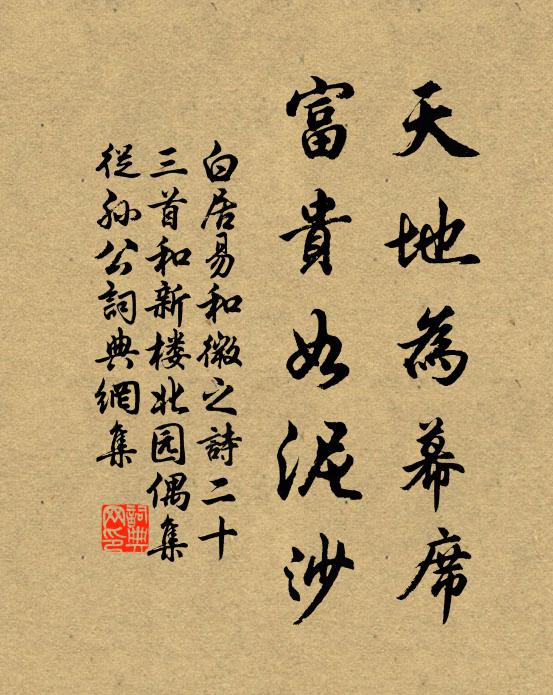 天地為幕席
富貴如泥沙
白居易和微之詩二十
三首和新楼北园偶集
從孙公詞典網集
詞典網印